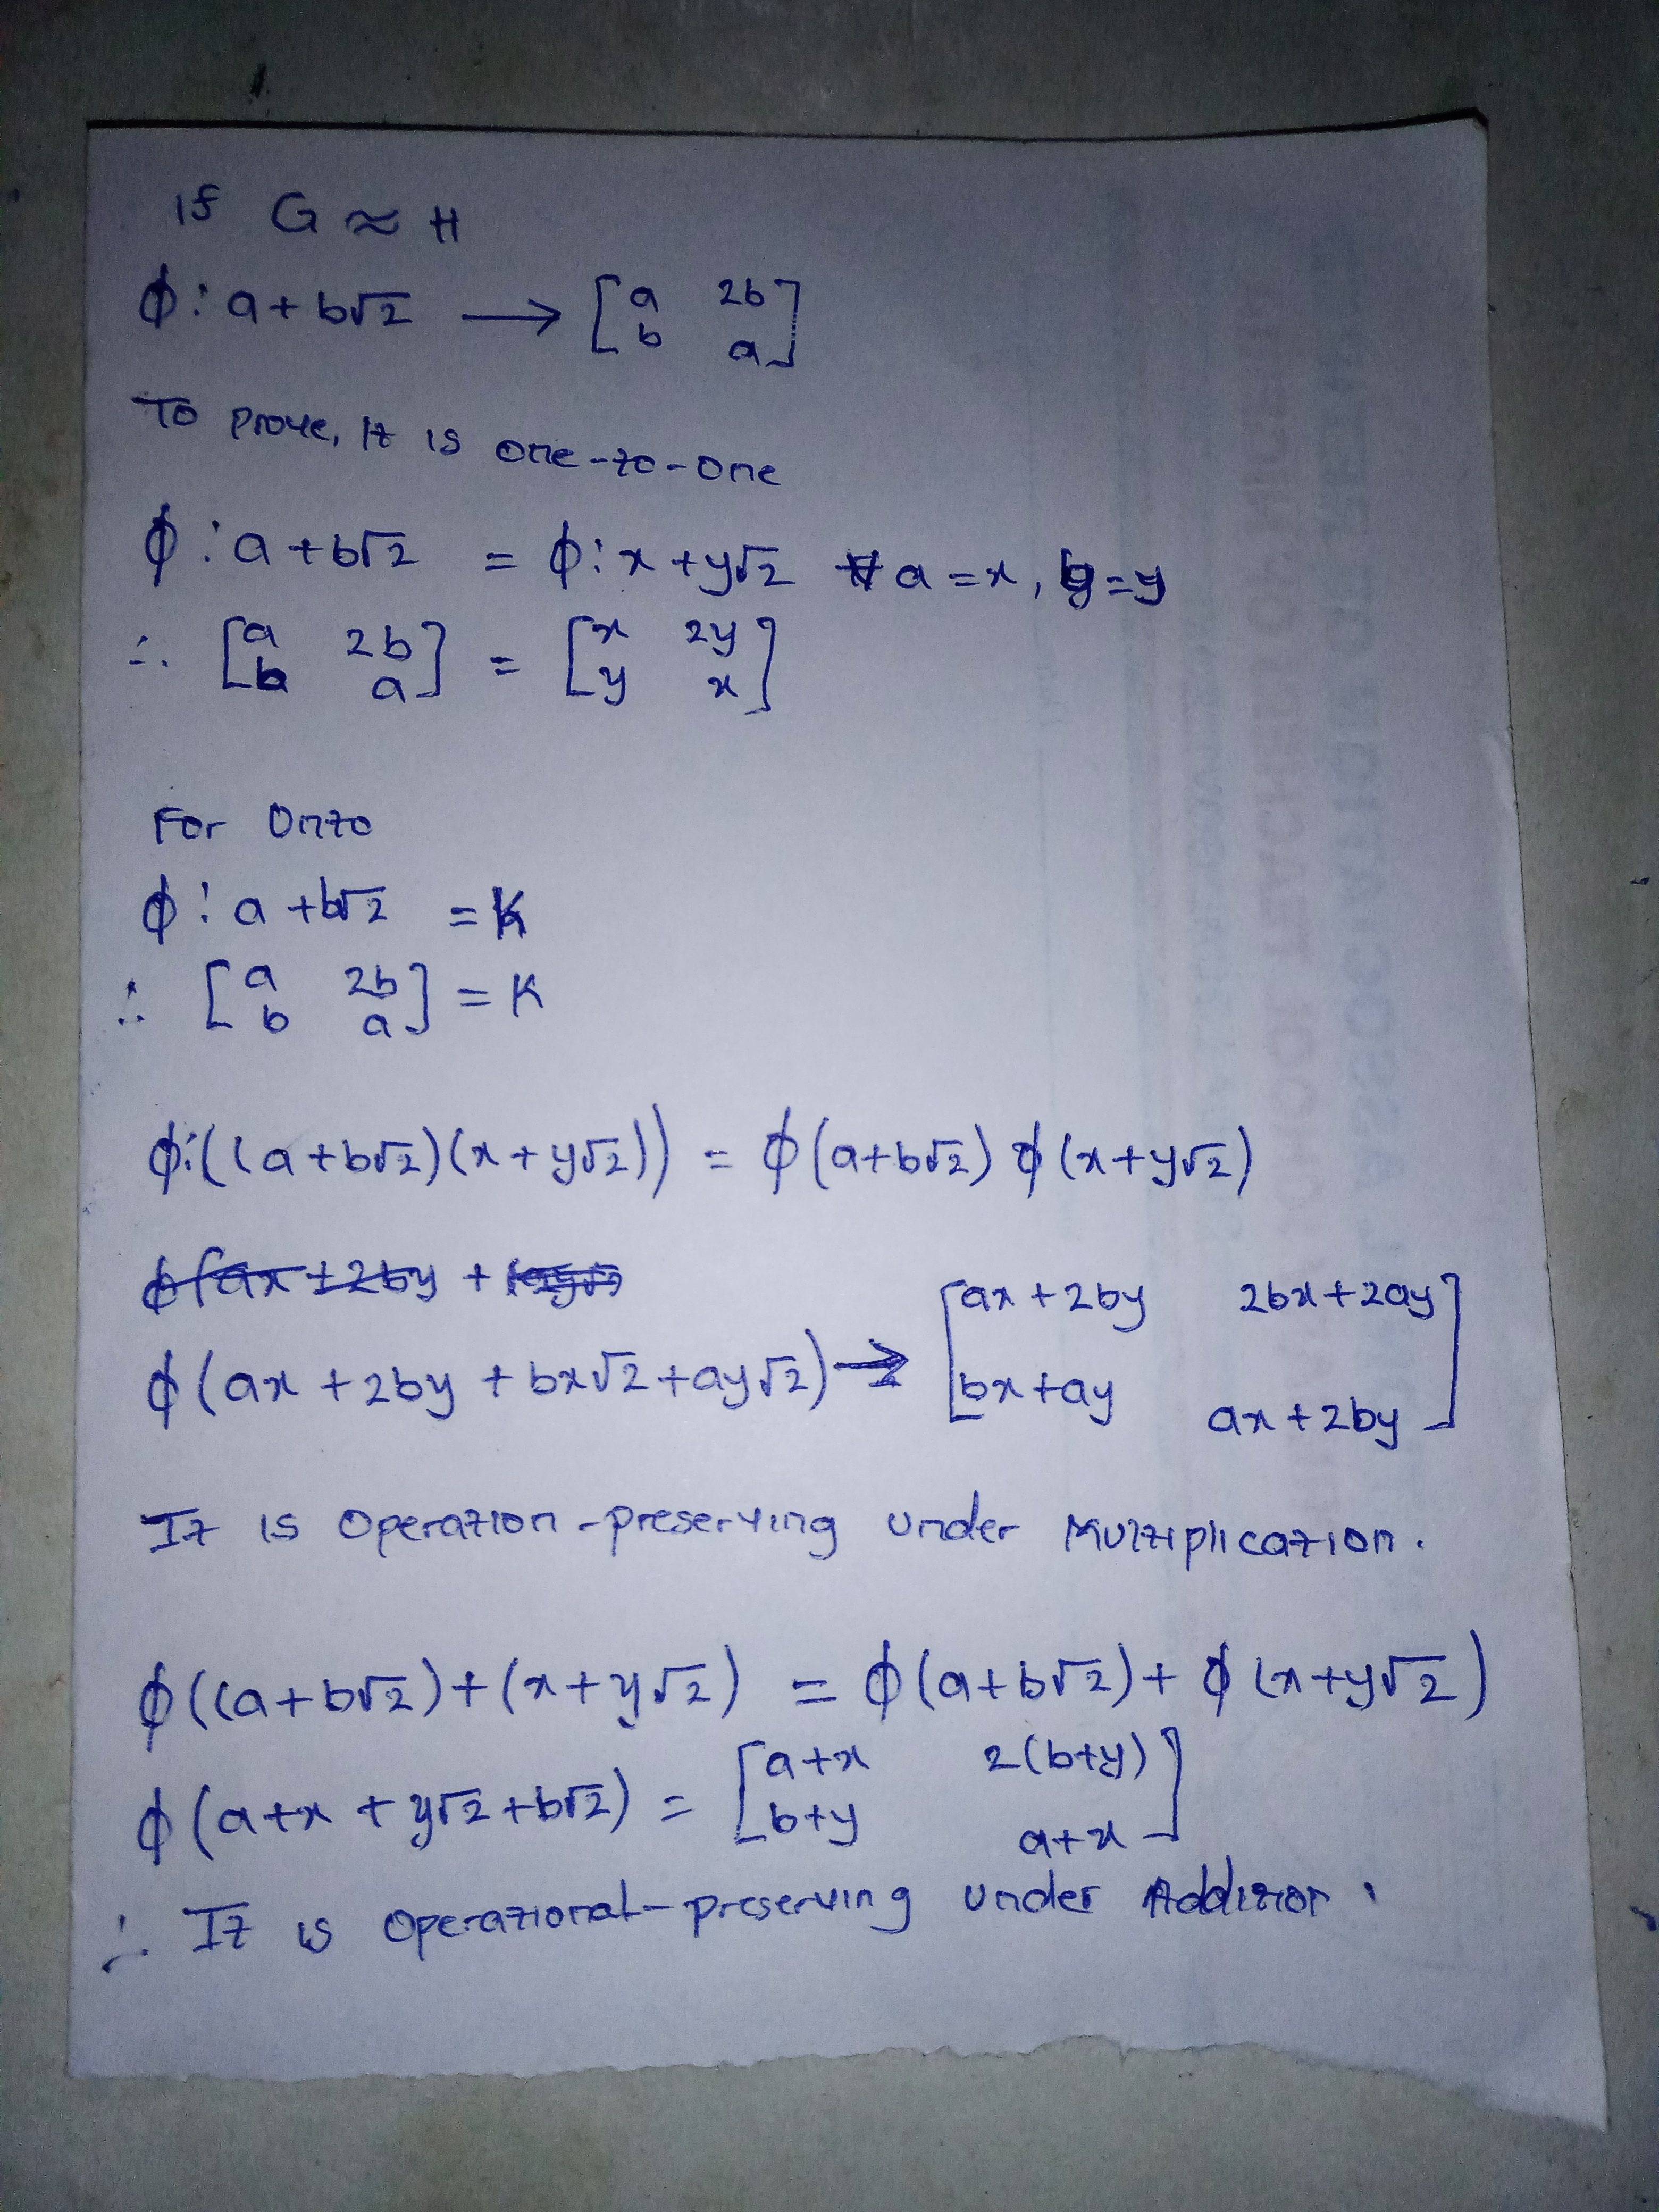 If G ≈ H
ϕ: a + b√2 → [a 2b
b a]
To prove, It is one-to-one
ϕ: a + b√2 = ϕ: x + y√2 a = x, b = y
∴ [a 2b
b a] = [x 2y
y x]
For Onto
ϕ: a + b√2 = K
∴ [a 2b
b a] = K
ϕ:((a + b√2)(x + y√2)) = ϕ(a + b√2) ϕ(x + y√2)
ϕ(ax + 2by +
ϕ(ax + 2by + bx√2 + ay√2) → [ax + 2by 2bx + 2ay
bx + ay ax + 2by]
It is Operation-preserving under Multiplication.
ϕ((a + b√2) + (x + y√2) = ϕ(a + b√2) + ϕ(x + y√2)
ϕ(a + x + y√2 + b√2) = [a + x 2(b + y)
b + y a + x]
∴ It is Operational-preserving under Addition.